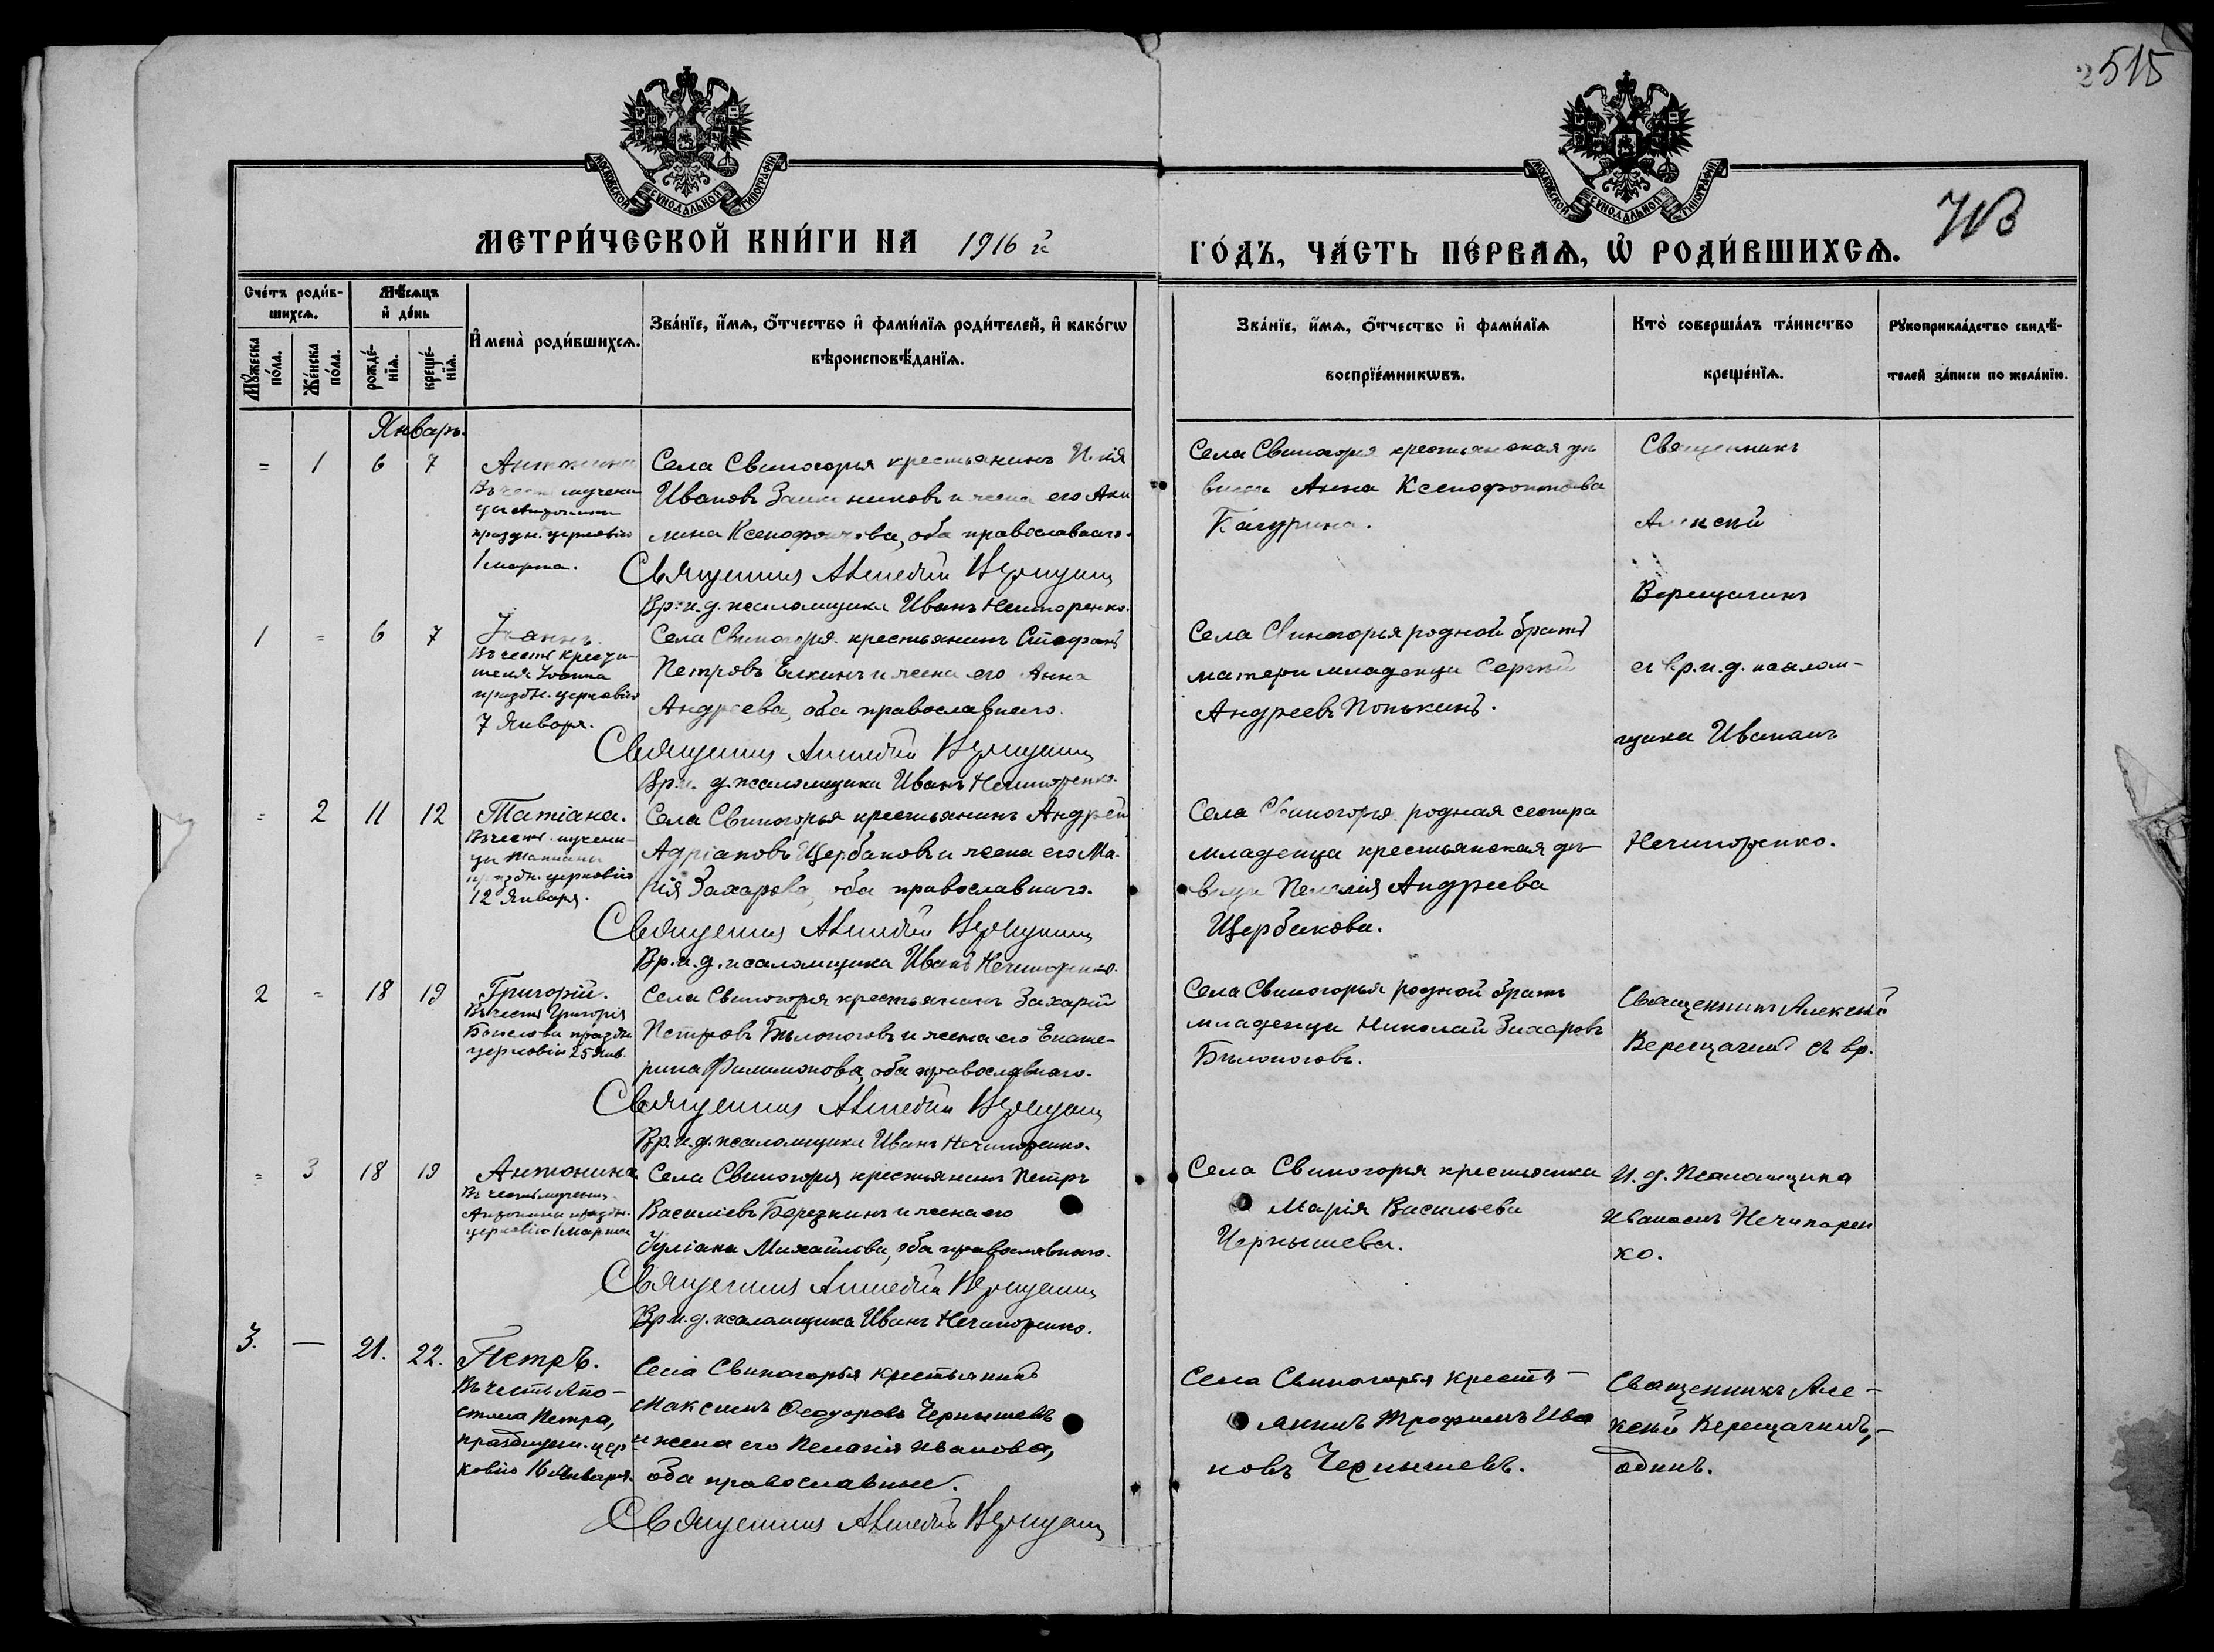 515
МОСКОВСКОЙ СѴНОДАЛЬНОЙ ТИПОГРАФІИ
МОСКОВСКОЙ СѴНОДАЛЬНОЙ ТИПОГРАФІИ
МЕТРИ́ЧЕСКОЙ КНИ́ГИ НА 1916 й
ГО́ДЪ, ЧА́СТЬ ПЕ́РВАЯ, Ѡ РОДИ́ВШИХСѦ.
Сче́тъ роди́в-
шихсѧ.
Мꙋ́жеска
по́ла.
Же́нска
по́ла.
Мѣ́сѧцъ
и҆ де́нь
рожде́-
нїѧ.
креще́-
нїѧ.
И҆мена̀ роди́вшихсѧ.
Зва́нїе, и҆́мѧ, ѻ҆́тчество и҆ фами́лїѧ роди́телей, и҆ како́гѡ
вѣроисповѣ́данїѧ.
Зва́нїе, и҆́мѧ, ѻ҆́тчество и҆ фами́лїѧ
воспрїе́мникѡвъ.
Кто̀ соверша́лъ та́инство
креще́нїѧ.
Рꙋкоприкла́дство свидѣ́-
телей за́писи по жела́нїю.
Январь.
= 1 6 7
Антонина
Въ честь мучени
цы Антонины
праздн. церковію
1 марта.
Села Свиногорья крестьянинъ
Ивановъ и жена его Аки
лина Ксенофонтова, оба православнаго.
Священникъ Алексѣй Верещагинъ
Вр. и. д. псаломщика Иванъ Нечипоренко.
Села Свиногорья крестьянская дѣ
вица Анна Ксенофонтова
Качурина.
Священникъ
Алексѣй
Верещагинъ
съ вр. и. д. псалом-
щика Иваномъ
Нечипоренко.
1 = 6 7
Іоаннъ.
Въ честь Крести-
теля Іоанна
праздн. церковію
7 Января.
Села Свиногорья крестьянинъ Стефанъ
Петровъ Елкинъ и жена его Анна
Андреева, оба православнаго.
Священникъ Алексѣй Верещагинъ
Вр. и. д. псаломщика Иванъ Нечипоренко.
Села Свиногорья родной братъ
матери младенца Сергѣй
Андреевъ Попькинъ.
= 2 11 12
Татіана.
Въ честь мучени-
цы Татианы
праздн. церковію
12 Января.
Села Свиногорья крестьянинъ Андрей
Адріановъ Щербаковъ и жена его Ма-
рія Захарова, оба православнаго.
Священникъ Алексѣй Верещагинъ
Вр. и. д. псаломщика Иванъ Нечипоренко.
Села Свиногорья родная сестра
младенца крестьянская дѣ-
вица Пелагія Андреева
Щербакова.
2 = 18 19
Григорій.
Въ честь Григорія
Богослова праздн.
церковію 25 Янв.
Села Свиногорья крестьянинъ Захарій
Петровъ Бѣлоноговъ и жена его Екате-
рина Филимонова, оба православнаго.
Священникъ Алексѣй Верещагинъ
Вр. и. д. псаломщика Иванъ Нечипоренко.
Села Свиногорья родной братъ
младенца Николай Захаровъ
Бѣлоноговъ.
Священникъ Алексѣй
Верещагинъ съ вр.
= 3 18 19
Антонина
Въ честь мучениц.
Антонины праздн.
церковію 1 Марта
Села Свиногорья крестьянинъ Петръ
Василіевъ Березкинъ и жена его
Іуліана Михайлова, оба православнаго.
Священникъ Алексѣй Верещагинъ
Вр. и. д. псаломщика Иванъ Нечипоренко.
Села Свиногорья крестьянка
Марія Васильева
Чернышева.
И. д. Псаломщика
Иваномъ Нечипорен
ко.
3. — 21. 22.
Петръ.
Въ честь Апо-
стола Петра,
празднуем. цер
ковію 16 Января.
Села Свиногорья крестьянинъ
Максимъ Ѳеодоровъ Чернышевъ
и жена его Пелагія Иванова,
оба православные.
Священникъ Алексѣй Верещагинъ
Села Свиногорья кресть-
янинъ Трофимъ Ива
новъ Чернышевъ.
Священникъ Але-
ксѣй Верещагинъ,-
одинъ.